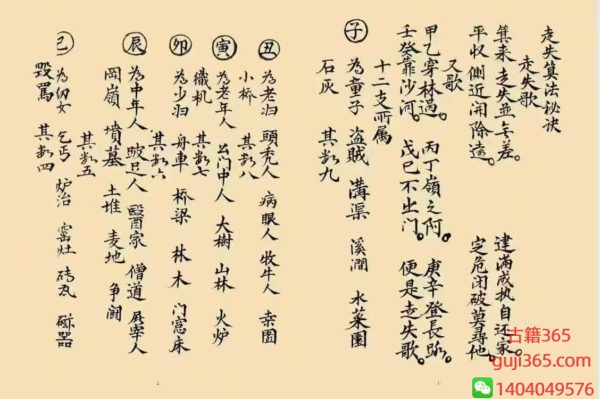 走失算法秘诀
走失歌
建满成执自还家。
定危闭破莫寻他。
平收侧近开除远。
算来走失並无差。
又歌
甲乙穿林過。 丙丁嶺之阿。 庚辛登長路。
壬癸靠沙河。 戊己不出门。 便是走失歌。
十二支所属
子 为童子 盗贼 溝渠 溪澗 水菜園
石灰 其数九
丑 为老妇 頭秃人 病眼人 牧牛人 桑園
小桥 其数八
寅 为老年人 公门中人 大樹 山林 火炉
織机 其数七
卯 为少妇 舟車 桥梁 林木 门窓床
其数六
辰 为中年人 跛足人 醫家 僧道 屠宰人
岡嶺 墳墓 土堆 麦地 争闹
其数五
巳 为幼女 乞丐 炉冶 窑灶 砖瓦 磁器
毁罵 其数四
2
1
古籍365
guji365.com
1404049576